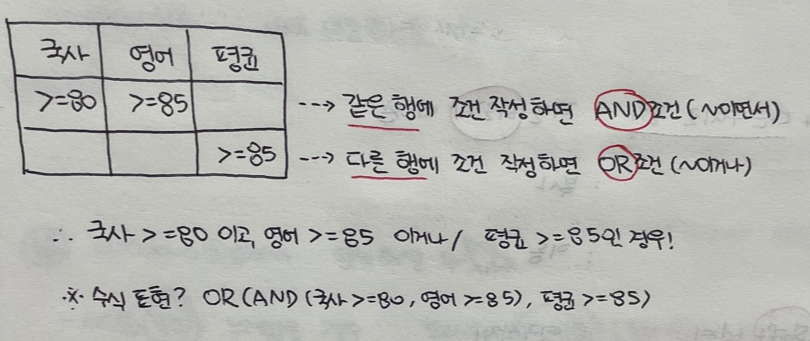 국사 영어 평균
>=80 >=85 ---> 같은 행에 조건 작성하면 AND조건(~이면서)
>=85 ---> 다른 행에 조건 작성하면 OR조건(~이거나)
∴ 국사 >=80 이고, 영어 >=85 이거나 / 평균 >=85인 경우!
※ 수식 표현? OR(AND(국사>=80, 영어>=85), 평균>=85)